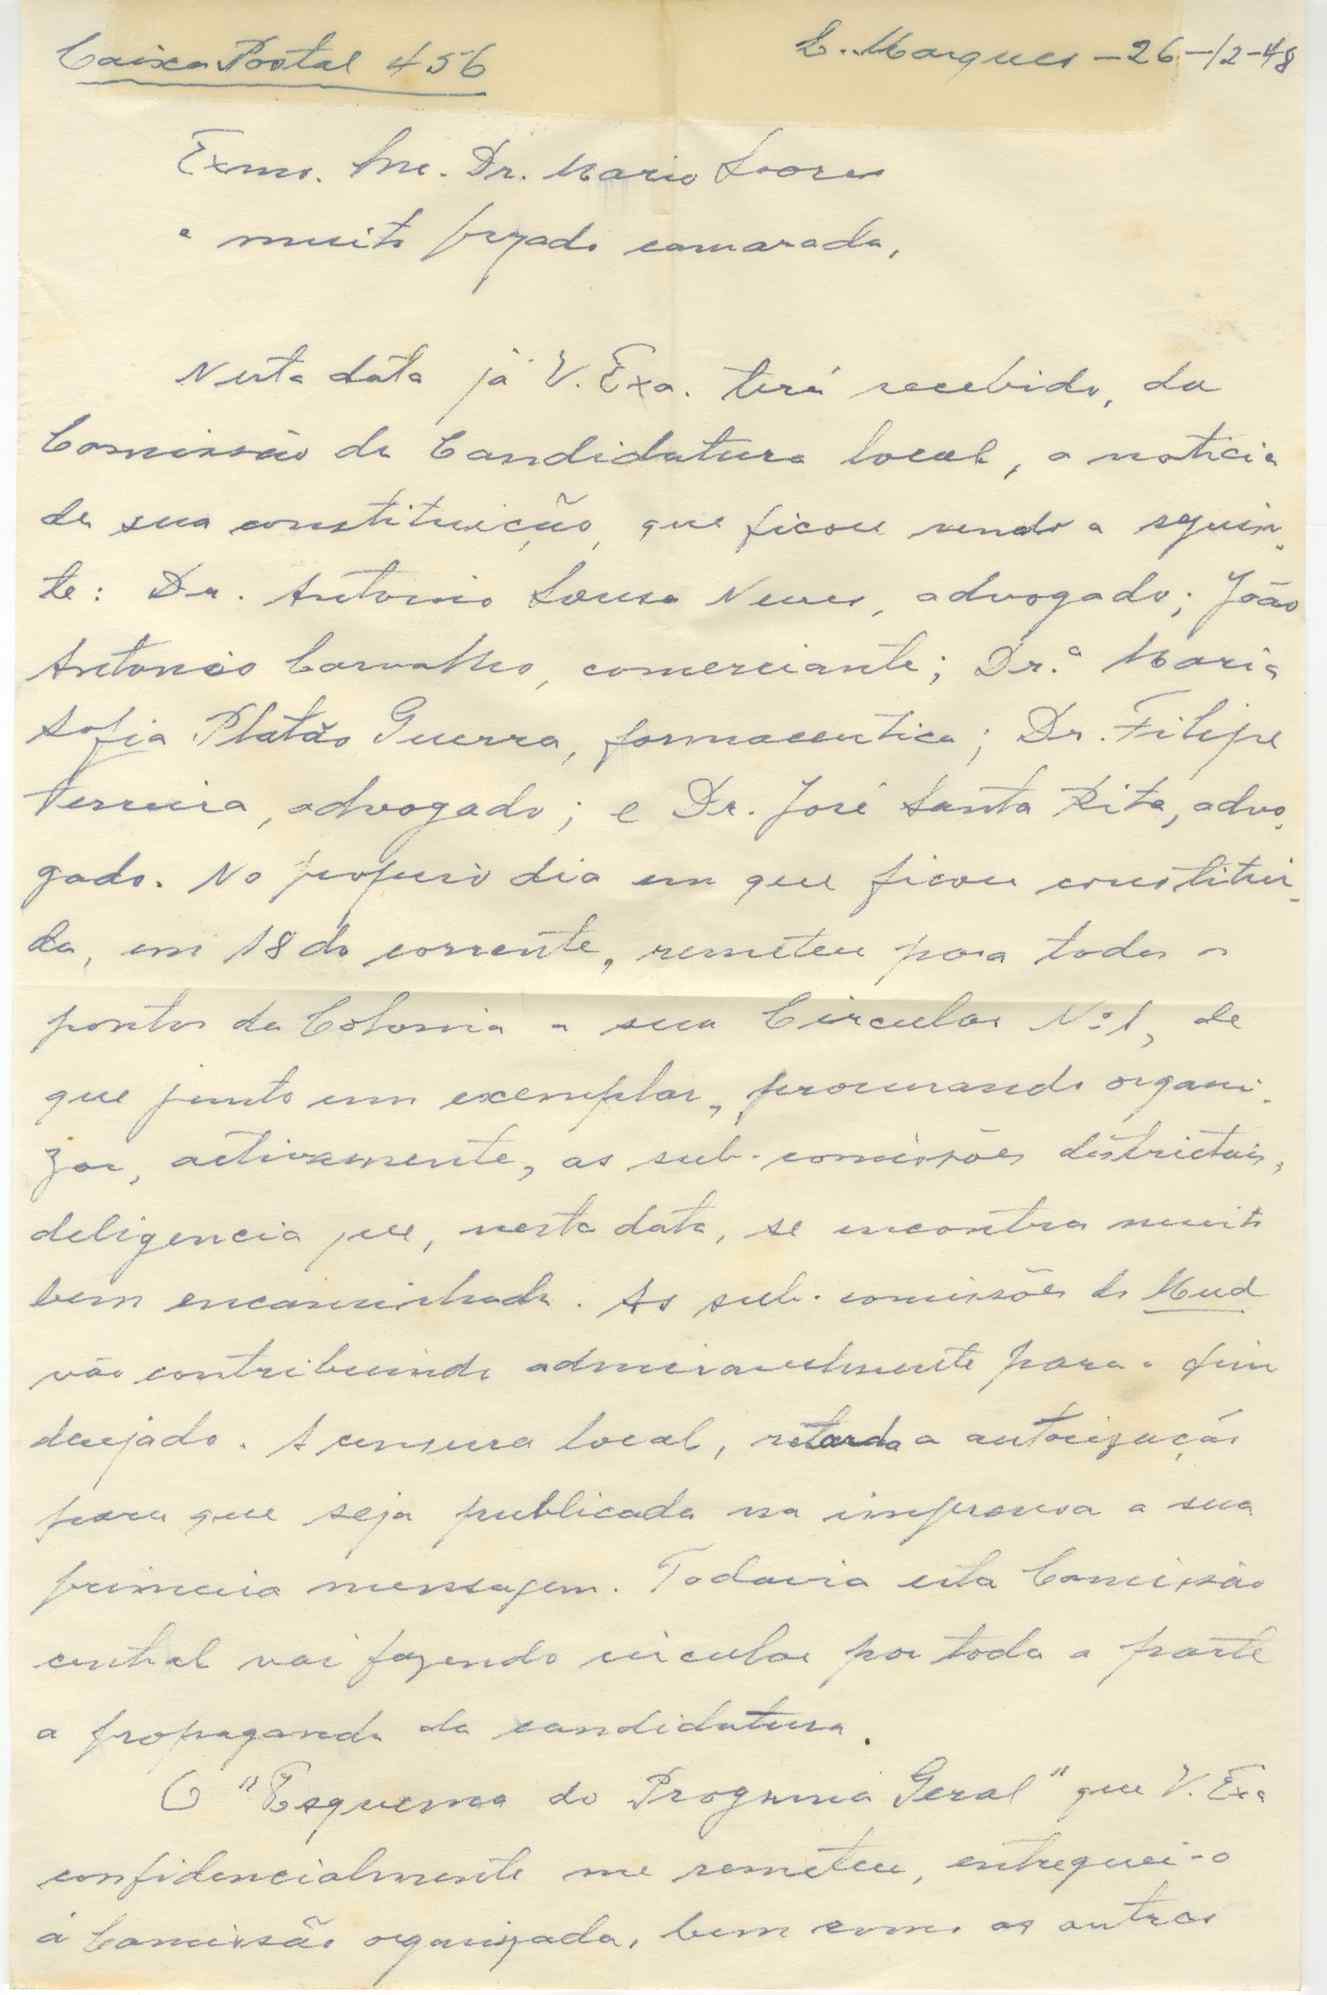 Caixa Postal 456
L. Marques - 26-12-48
Exmo. Snr. Dr. Mario Soares
e muito prezado camarada,
Nesta data já V. Exa. terá recebido, da
Comissão da Candidatura local, a noticia
da sua constituição, que ficou sendo a seguin-
te: Dr. Antonio Sousa Neves, advogado; João
Antonio Carvalho, comerciante; Dr.ª Maria
Sofia Platão Guerra, farmaceutica; Dr. Filipe
Ferreira, advogado; e Dr. José Santa Rita, advo-
gado. No proprio dia em que ficou constitui-
da, em 18 do corrente, remeteu para todos os
pontos da Colonia a sua Circular Nº 1, de
que junto um exemplar, procurando organi-
zar, activamente, as sub-comissões districtais,
deligencia que, nesta data, se encontra muito
bem encaminhada. As sub-comissões do Mud
vão contribuindo admiravelmente para o fim
desejado. A censura local, retarda a autorização
para que seja publicada na imprensa a sua
primeira mensagem. Todavia esta Comissão
central vai fazendo circular por toda a parte
a propaganda da candidatura.
O "Esquema do Programa Geral" que V. Exa
confidencialmente me remeteu, entreguei-o
á Comissão organizada, bem como os outros